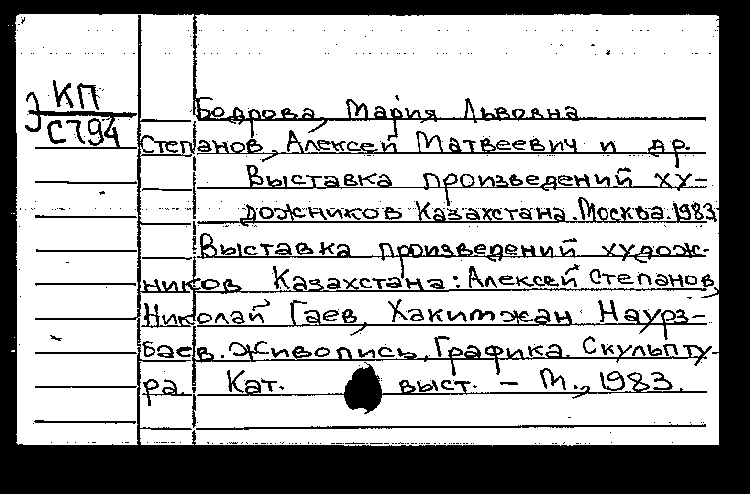 Э КП
С794
Бодрова, Мария Львовна
Степанов, Алексей Матвеевич и др.
Выставка произведений ху-
дожников Казахстана. Москва. 1983
Выставка произведений худож-
ников Казахстана: Алексей Степанов,
Николай Гаев, Хакимжан Наурз-
баев. Живопись. Графика. Скульпту-
ра. Кат. выст. – М., 1983.